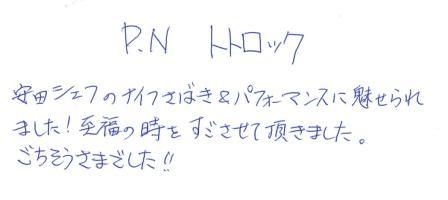 P.N トトロック
安田シェフのナイフさばき&パフォーマンスに魅せられ
ました!至福の時をすごさせて頂きました。
ごちそうさまでした!!